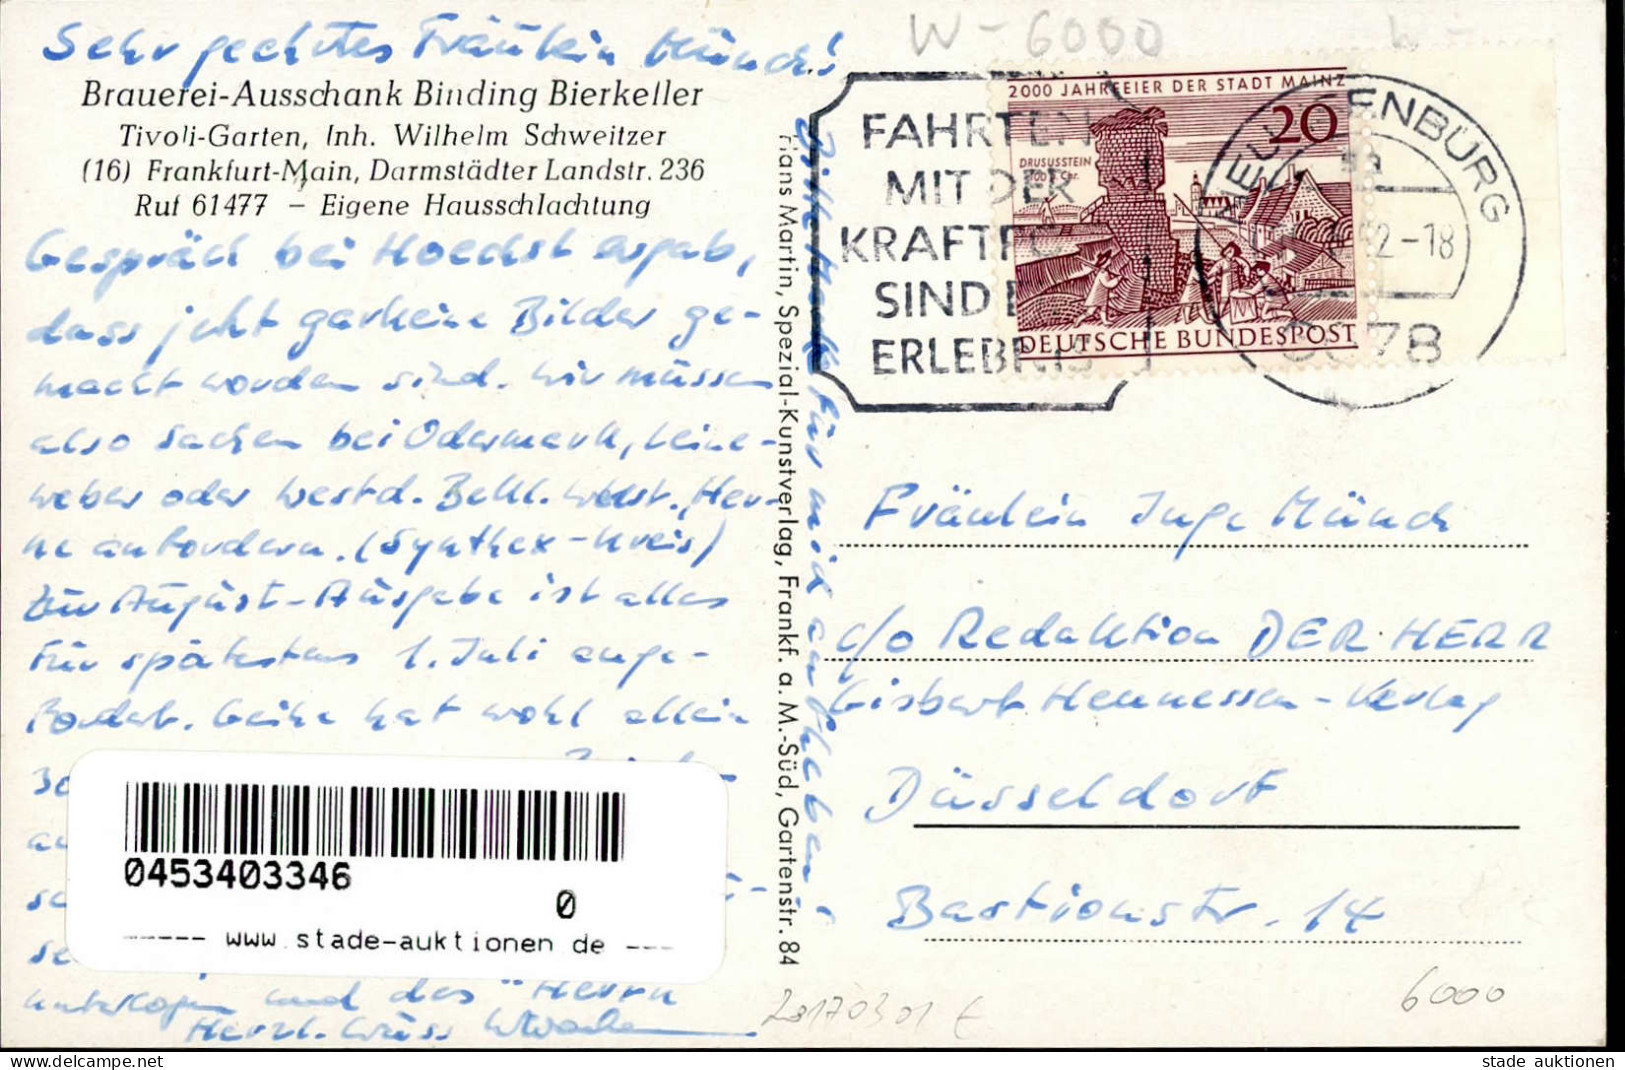 Sehr geehrtes Fräulein Münch!
Brauerei-Ausschank Binding Bierkeller
Tivoli-Garten, Inh. Wilhelm Schweitzer
(16) Frankfurt-Main, Darmstädter Landstr. 236
Ruf 61477 – Eigene Hausschlachtung
Gespräch bei Hoechst ergab,
dass jetzt garkeine Bilder ge-
macht worden sind. Wir müssen
also Sachen bei Odermark, Leine-
weber oder Westd. Bekl. Werst., Her-
ne anfordern. (Synthex-Kreis)
Zur August-Ausgabe ist alles
für spätestens 1. Juli ange-
fordert. hat wohl allein
und des "Herrn
Herzl. Grüss
Bitte Merke für mich aufheben!
Hans Martin, Spezial-Kunstverlag, Frankf. a. M.-Süd, Gartenstr. 84
W-6000
W-
FAHRTEN
MIT DER
KRAFTPO
SIND E
ERLEBNIS
2000 JAHRFEIER DER STADT MAINZ
20
DRUSUSSTEIN
DEUTSCHE BUNDESPOST
NEU ENBURG
2-18
6078
Fräulein Inge Münch
c/o Redaktion DER HERR
Gisbert Hennessen-Verlag
Düsseldorf
Bastionstr. 14
6000
0453403346
0
----- www.stade-auktionen.de ---
stade auktionen